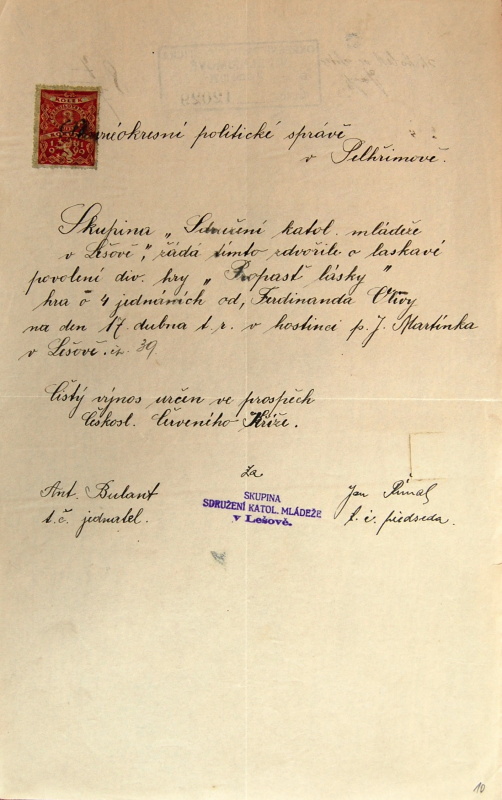 KOLEK
3
okresní politické správě
v Pelhřimově.
Skupina „Sdružení katol. mládeže
v Lešově", žádá tímto zdvořile o laskavé
povolení div. hry „Propast lásky"
hra o 4 jednáních od, Ferdinanda Olivy
na den 17. dubna t. r. v hostinci p. J. Martínka
v Lešově. čz. 39.
Čistý výnos určen ve prospěch
Českosl. Červeného Kříže.
Za
Ant. Bulant
t. č. jednatel.
SKUPINA
SDRUŽENÍ KATOL. MLÁDEŽE
v Lešově.
Jan
t. č. předseda.
10